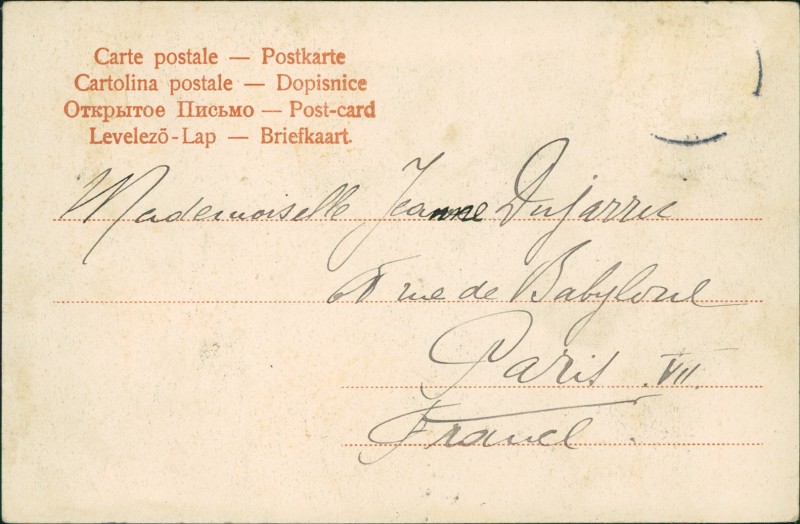 Carte postale — Postkarte
Cartolina postale — Dopisnice
Открытое Письмо — Post-card
Levelezõ-Lap — Briefkaart.
Mademoiselle Jeanne Dujarric
rue de Babylone
Paris. VII.
France.